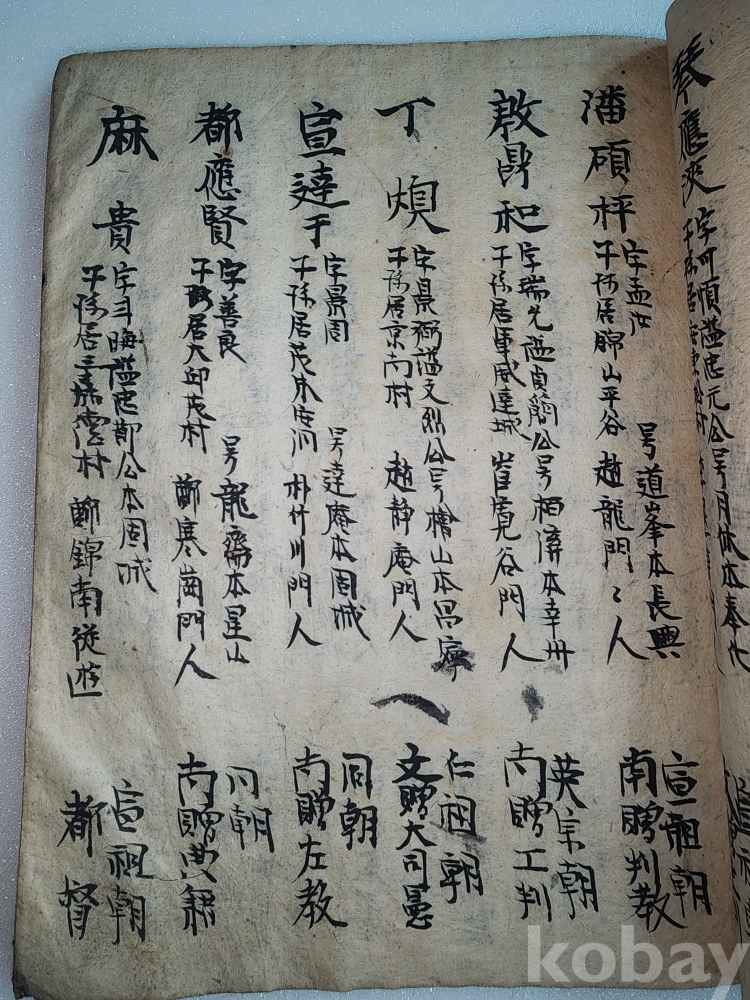 琴應浹
字可順謚忠元公号月休本奉化
子孫居
潘碩枰
字孟汝 号道峯本長興
子孫居錦山平谷 趙龍門〻人
宣祖朝
南贈判教
敦昇和
字瑞光謚貞簡公号栢濟本幸州
子孫居軍威達城 崔寛谷門人
英宗朝
南贈工判
丁熿
字景弼謚文烈公号檜山本昌寧
子孫居京南村 趙静庵門人
仁祖朝
文贈大司憲
宣達于
字景周 号達庵本固城
子孫居茂朱安河 朴竹川門人
同朝
南贈左教
都應賢
字善良 号龍齋本星山
子孫居大邱茂村 鄭寒崗門人
同朝
南贈典籍
麻貴
字斗晦謚忠節公本固城
子孫居三嘉村 鄭錦南從遊
宣祖朝
都督
kobay